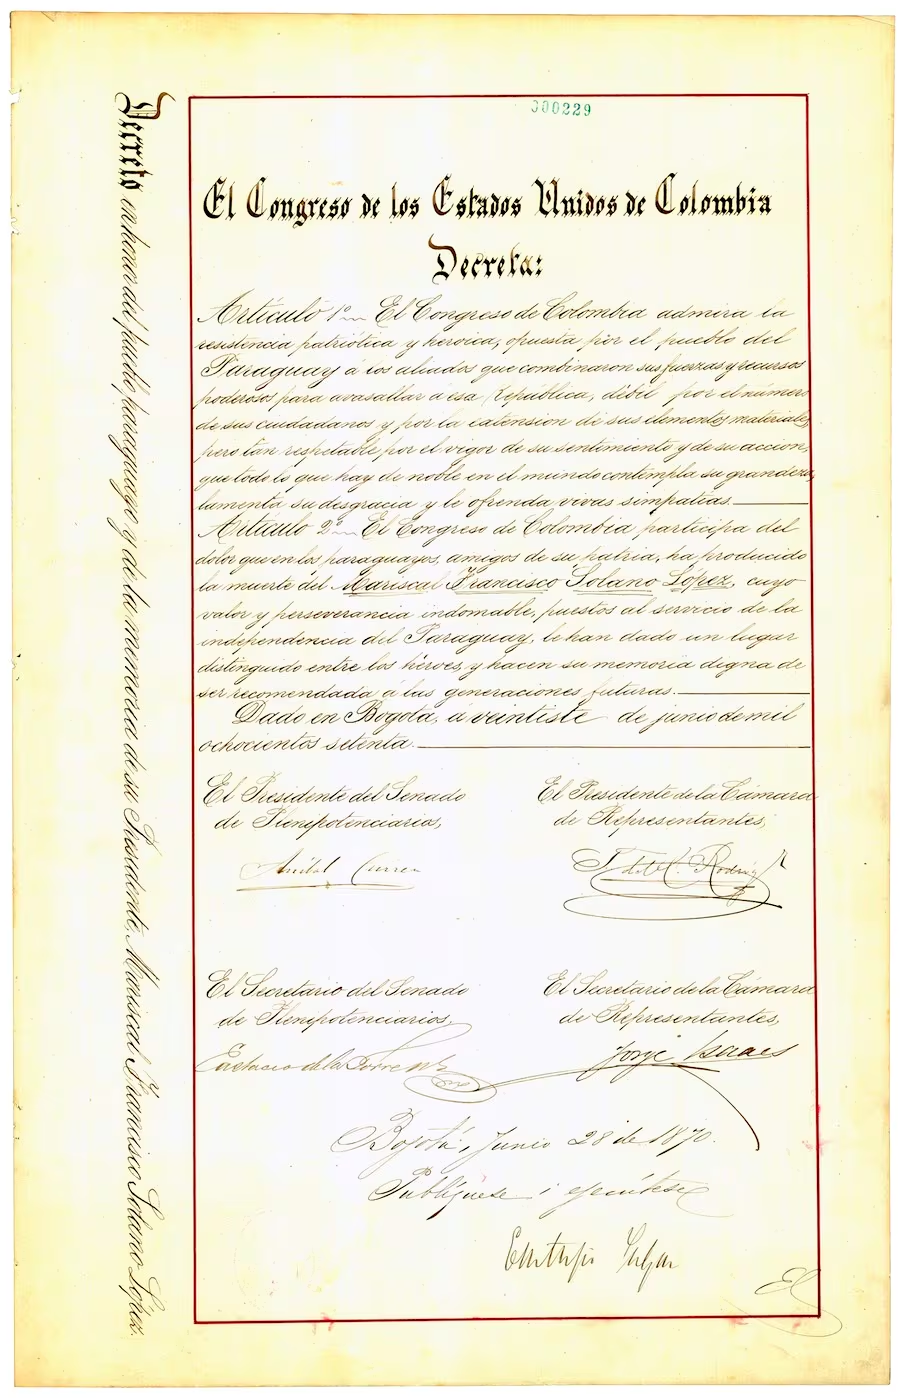 Decreto en honor del pueblo paraguayo y de la memoria de su Presidente, Mariscal Francisco Solano López.
000229
El Congreso de los Estados Unidos de Colombia
Decreta:
Artículo 1º El Congreso de Colombia admira la
resistencia patriótica y heroica, opuesta por el pueblo del
Paraguay á los aliados que combinaron sus fuerzas y recursos
poderosos para avasallar á esa República, débil por el número
de sus ciudadanos y por la extension de sus elementos materiales,
pero tan respetable por el vigor de su sentimiento y de su accion,
que todo lo que hay de noble en el mundo contempla su grandeza,
lamenta su desgracia y le ofrenda vivas simpatías.
Artículo 2º El Congreso de Colombia participa del
dolor que en los paraguayos, amigos de su patria, ha producido
la muerte del Mariscal Francisco Solano López, cuyo
valor y perseverancia indomable, puestos al servicio de la
independencia del Paraguay, le han dado un lugar
distinguido entre los héroes, y hacen su memoria digna de
ser recomendada á las generaciones futuras.
Dado en Bogotá, á veintisete de junio de mil
ochocientos setenta.
El Presidente del Senado
de Plenipotenciarios,
El Presidente de la Cámara
de Representantes,
Aníbal Correa
El Secretario del Senado
de Plenipotenciarios,
El Secretario de la Cámara
de Representantes,
Eustacio de la Torre N.
Jorje Isaacs
Bogotá, Junio 28 de 1870.
Publíquese i ejecútese
Eustorjio Salgar